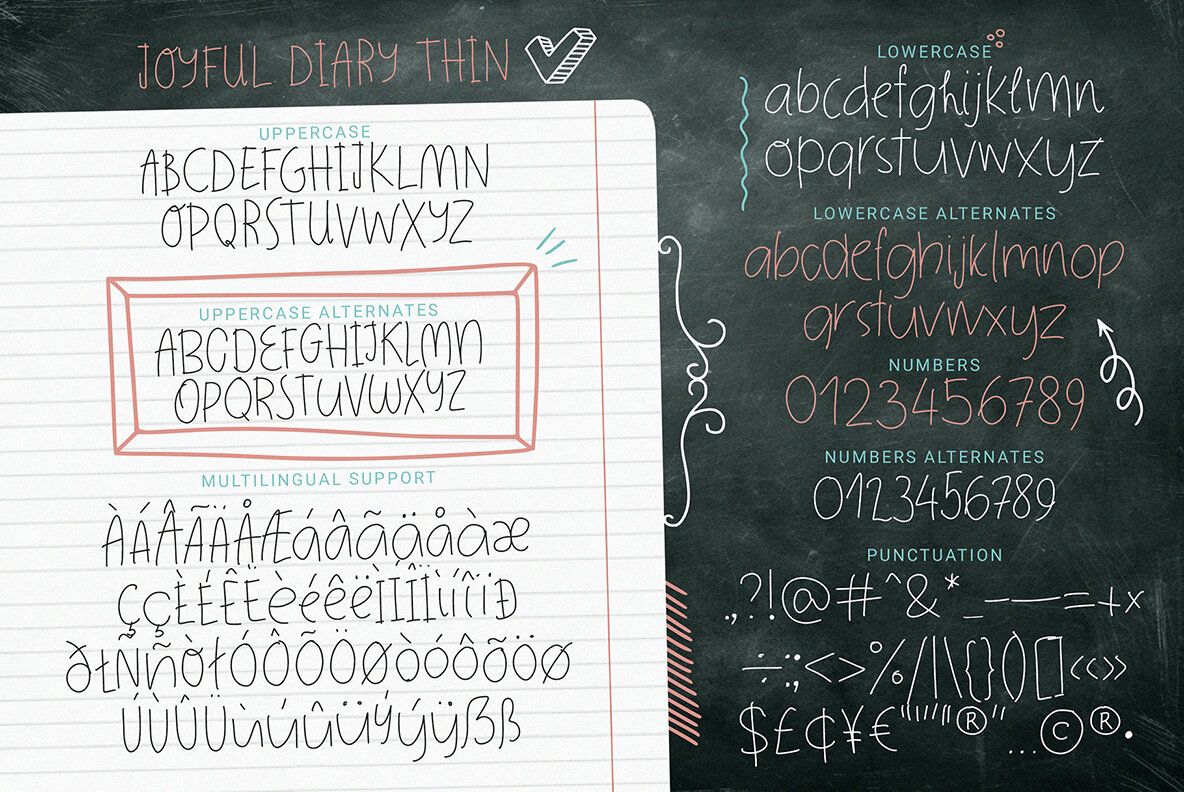 JOYFUL DIARY THIN
UPPERCASE
ABCDEFGHIJKLMN
OPQRSTUVWXYZ
UPPERCASE ALTERNATES
ABCDEFGHIJKLMN
OPQRSTUVWXYZ
MULTILINGUAL SUPPORT
ÀÁÂÃÄÅÆáâãäåàæ
ÇçÈÉÊËèéêëÌÍÎÏìíîïÐ
ðŁÑñÒłÓÔÕÖØòóôõöø
ÚÙÛÜùúûüÝýÿẞß
LOWERCASE
abcdefghijklmn
opqrstuvwxyz
LOWERCASE ALTERNATES
abcdefghijklmnop
qrstuvwxyz
NUMBERS
0123456789
NUMBERS ALTERNATES
0123456789
PUNCTUATION
.,?!@#^&*_–—=+x
÷:;<>%/|\{}()[]«»
$£¢¥€“”‘’"®"…©®.